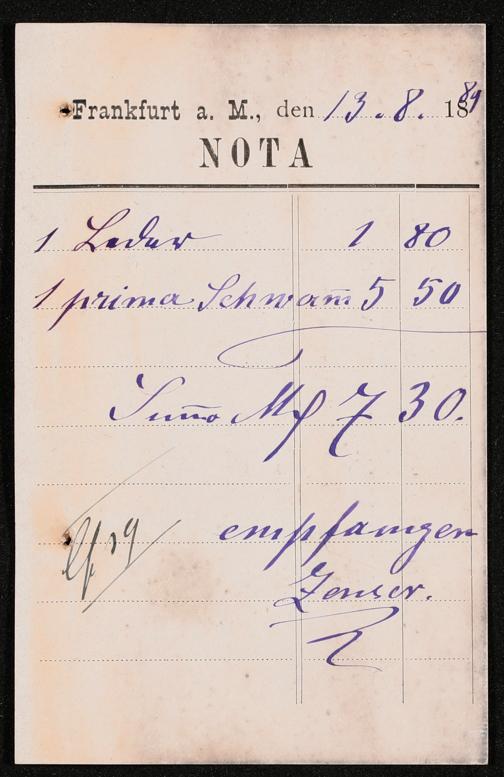 Frankfurt a. M., den 13.8. 1889
NOTA
1 Leder 1 80
1 prima Schwam̅ 5 50
Sum̅a M 7 30.
empfangen
Zenser.